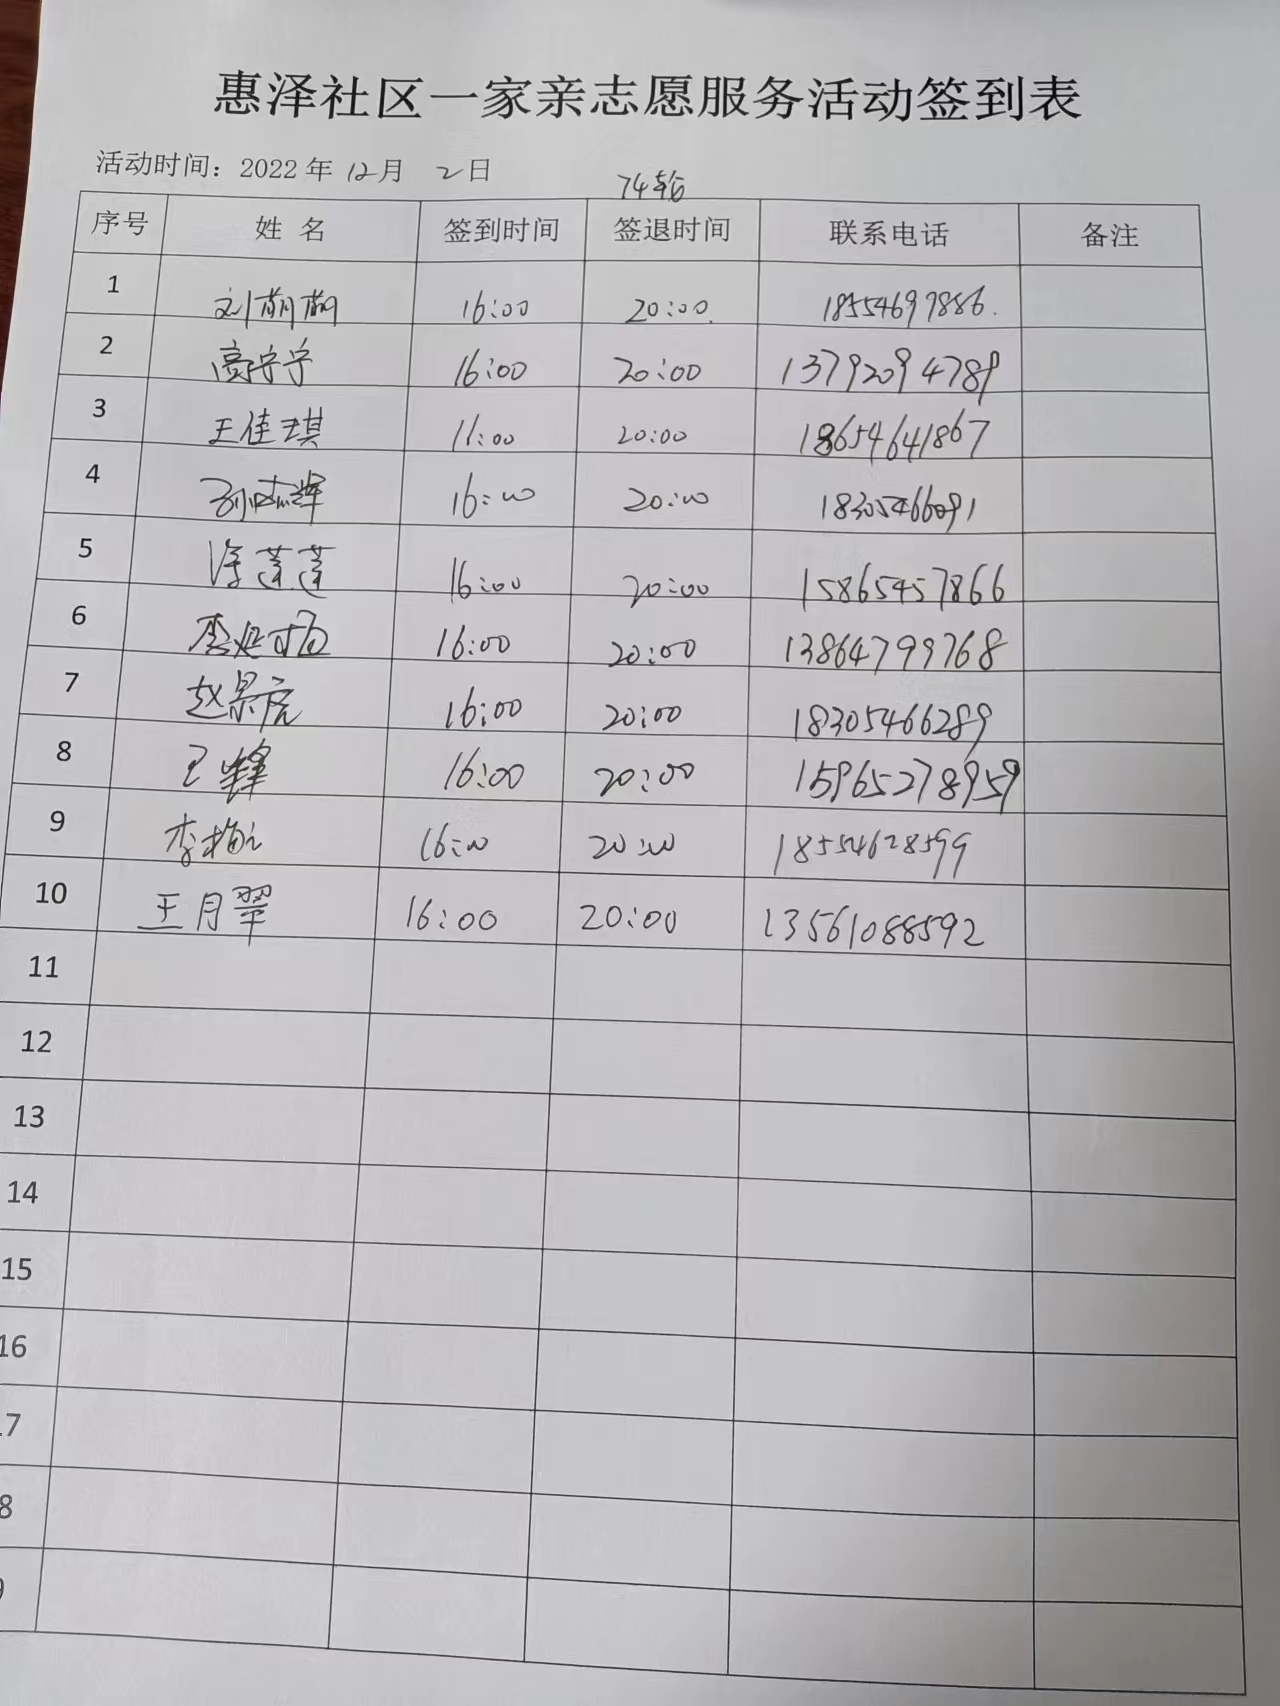 惠泽社区一家亲志愿服务活动签到表
活动时间：2022 年 12月 2日
74轮
序号 姓 名 签到时间 签退时间 联系电话 备注
1 刘萌萌 16:00 20:00. 18554699886.
2 高宁宁 16:00 20:00 13792094789
3 王佳琪 11:00 20:00 18654641867
4 16:00 20:00 18305466091
5 徐莲莲 16:00 20:00 15865457866
6 16:00 20:00 13864799768
7 赵景虎 16:00 20:00 18305466289
8 王锋 16:00 20:00 15965278959
9 16:00 20:00 18554628599
10 王月翠 16:00 20:00 13561088592
11
12
13
14
15
16
17
8
9